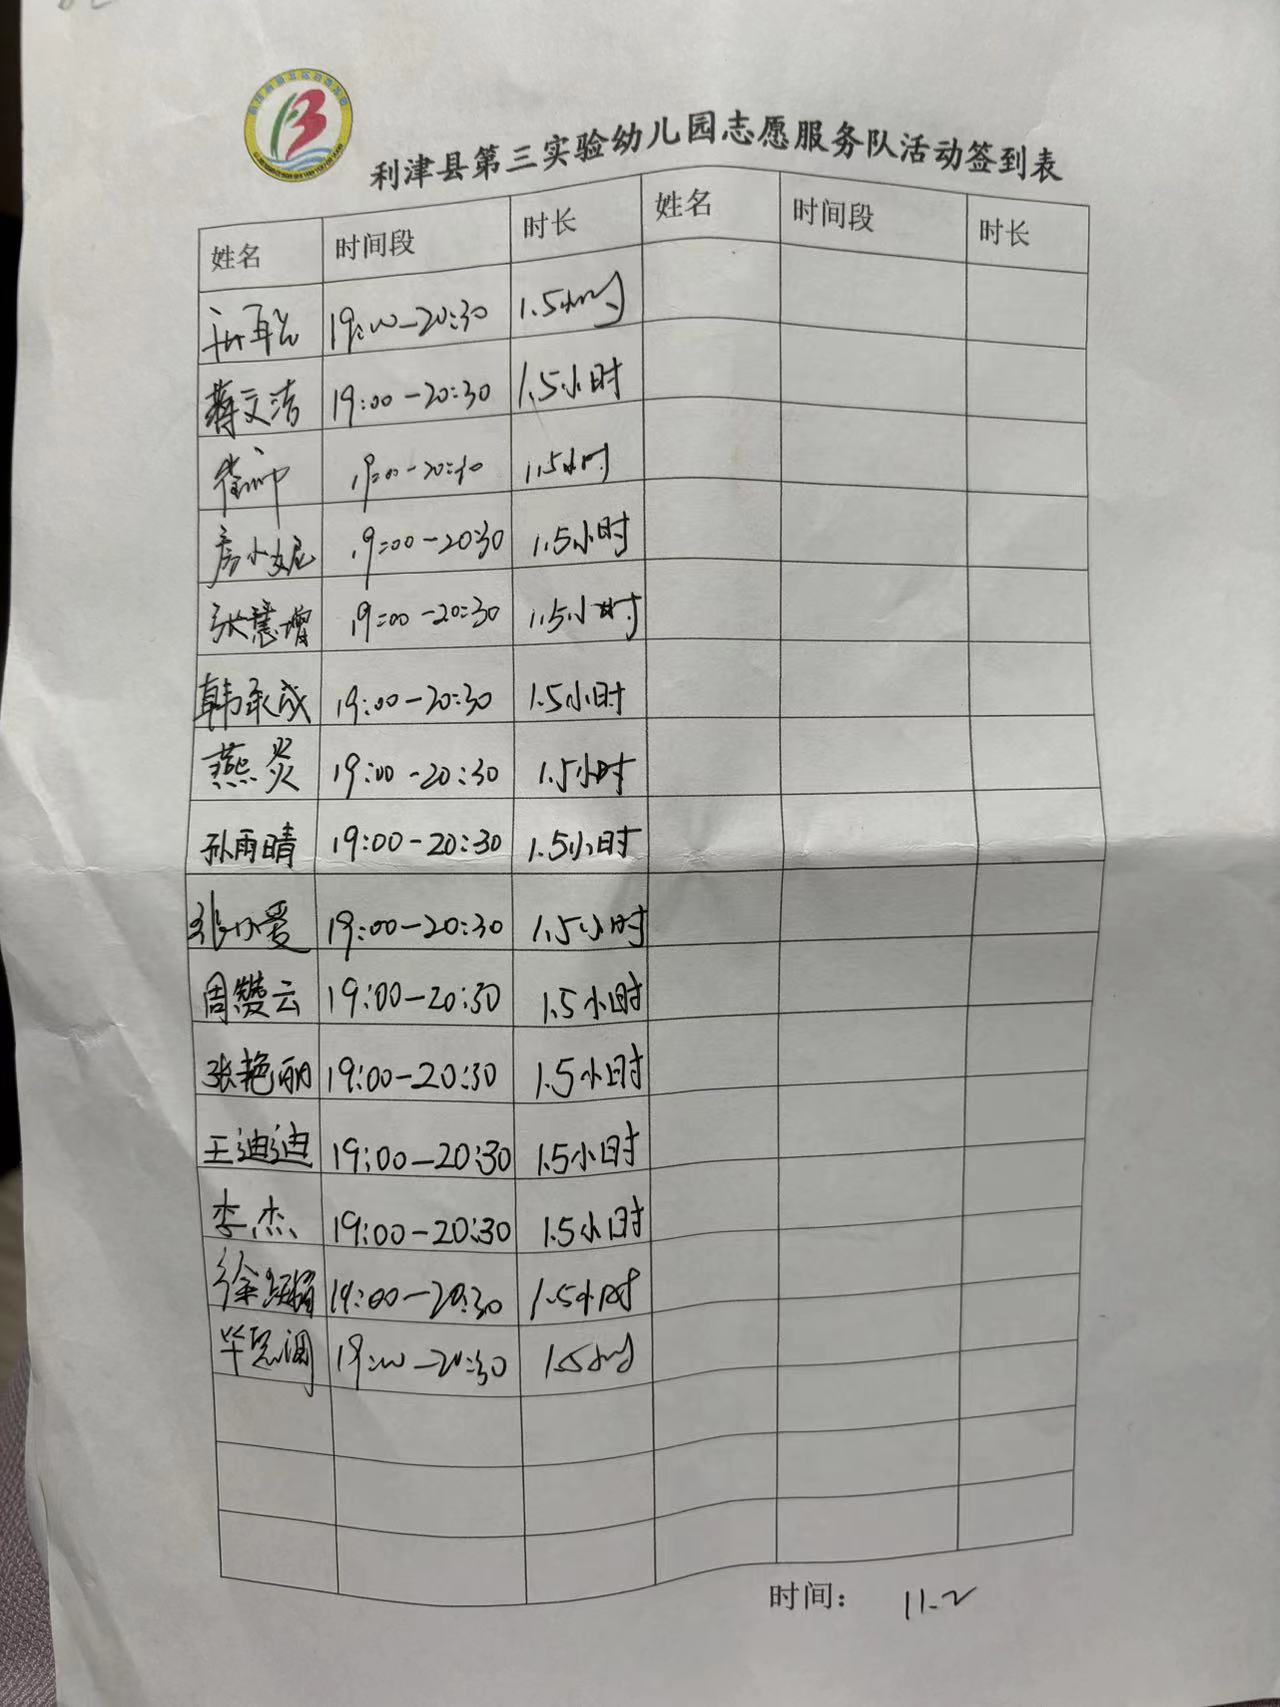 利津县第三实验幼儿园志愿服务队活动签到表
姓名 时间段 时长 姓名 时间段 时长
19:00-20:30 1.5小时
蒋文洁 19:00-20:30 1.5小时
崔帅 19:00-20:30 1.5小时
房小妮 19:00-20:30 1.5小时
张慧增 19:00-20:30 1.5小时
韩承成 19:00-20:30 1.5小时
燕炎 19:00-20:30 1.5小时
孙雨晴 19:00-20:30 1.5小时
张小爱 19:00-20:30 1.5小时
周赞云 19:00-20:30 1.5小时
张艳丽 19:00-20:30 1.5小时
王迪迪 19:00-20:30 1.5小时
李杰 19:00-20:30 1.5小时
徐 19:00-20:30 1.5小时
毕思润 19:00-20:30 1.5小时
时间： 11.2